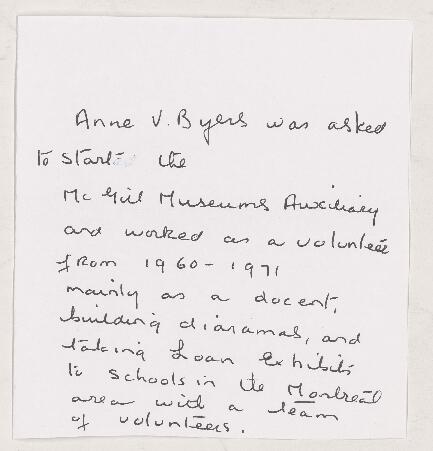 Anne V. Byers was asked
to start the
McGill Museums Auxiliary
and worked as a volunteer
from 1960-1971
mainly as a docent,
building dioramas, and
taking Loan Exhibits
to schools in the Montreal
area with a team
of volunteers.